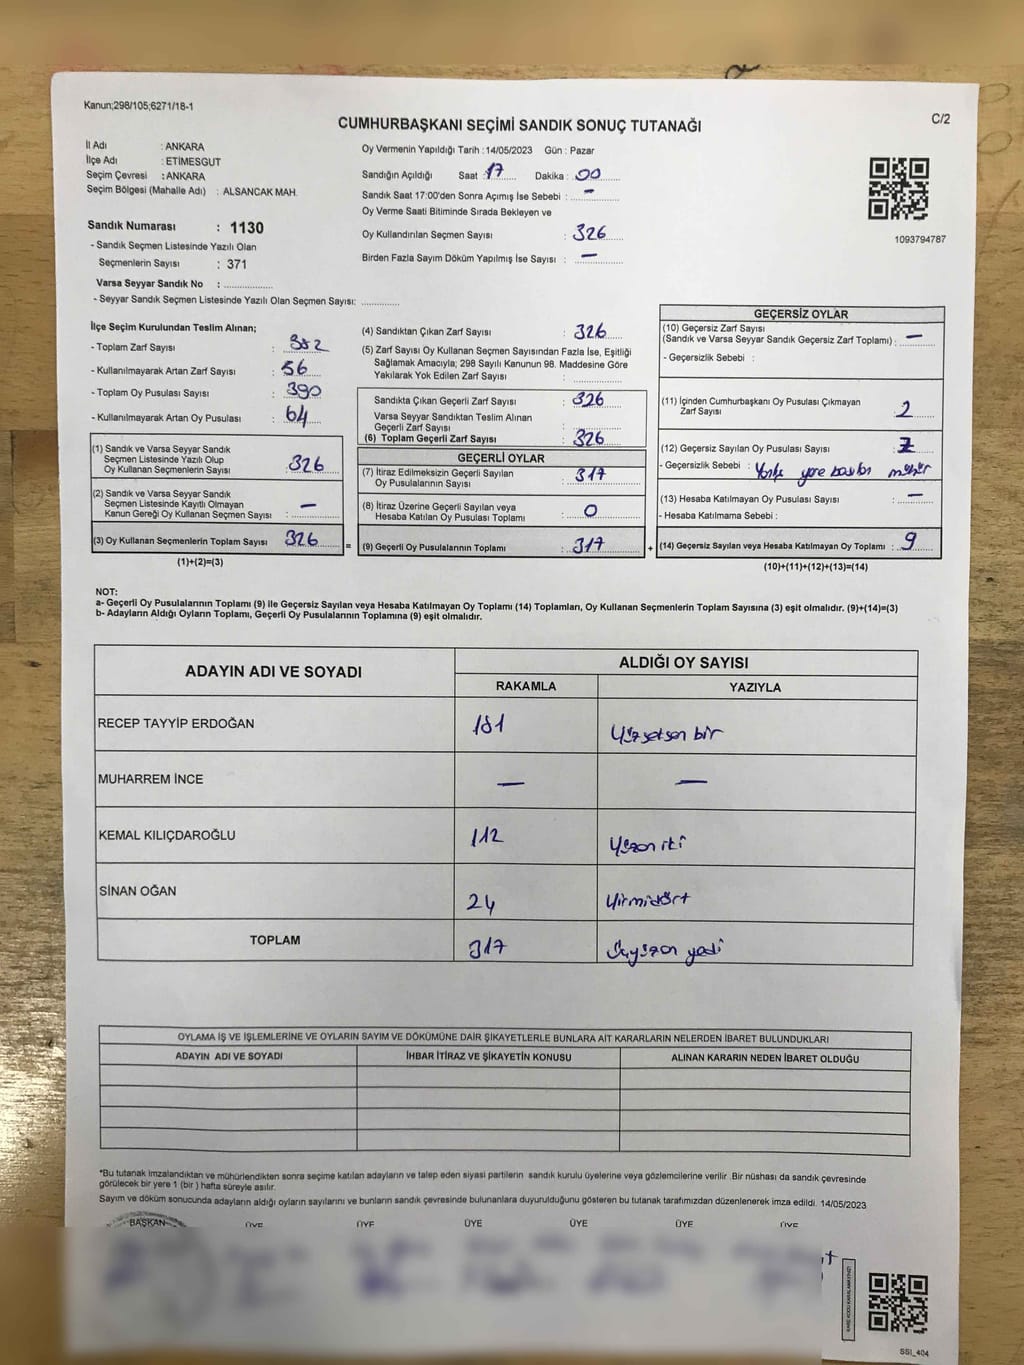 Kanun;298/105;6271/18-1
C/2
CUMHURBAŞKANI SEÇİMİ SANDIK SONUÇ TUTANAĞI
İl Adı : ANKARA
İlçe Adı : ETİMESGUT
Seçim Çevresi : ANKARA
Seçim Bölgesi (Mahalle Adı) : ALSANCAK MAH.
Sandık Numarası : 1130
- Sandık Seçmen Listesinde Yazılı Olan
Seçmenlerin Sayısı : 371
Varsa Seyyar Sandık No : ..............
- Seyyar Sandık Seçmen Listesinde Yazılı Olan Seçmen Sayısı: ............
Oy Vermenin Yapıldığı Tarih :14/05/2023 Gün : Pazar
Sandığın Açıldığı Saat : 17 Dakika : 00
Sandık Saat 17:00'den Sonra Açımış İse Sebebi : —
Oy Verme Saati Bitiminde Sırada Bekleyen ve
Oy Kullandırılan Seçmen Sayısı : 326
Birden Fazla Sayım Döküm Yapılmış İse Sayısı : —
1093794787
İlçe Seçim Kurulundan Teslim Alınan;
- Toplam Zarf Sayısı : 382
- Kullanılmayarak Artan Zarf Sayısı : 56
- Toplam Oy Pusulası Sayısı : 390
- Kullanılmayarak Artan Oy Pusulası : 64
(1) Sandık ve Varsa Seyyar Sandık
Seçmen Listesinde Yazılı Olup
Oy Kullanan Seçmenlerin Sayısı : 326
(2) Sandık ve Varsa Seyyar Sandık
Seçmen Listesinde Kayıtlı Olmayan
Kanun Gereği Oy Kullanan Seçmen Sayısı : —
(3) Oy Kullanan Seçmenlerin Toplam Sayısı : 326
(1)+(2)=(3)
(4) Sandıktan Çıkan Zarf Sayısı : 326
(5) Zarf Sayısı Oy Kullanan Seçmen Sayısından Fazla İse, Eşitliği
Sağlamak Amacıyla; 298 Sayılı Kanunun 98. Maddesine Göre
Yakılarak Yok Edilen Zarf Sayısı :
Sandıkta Çıkan Geçerli Zarf Sayısı : 326
Varsa Seyyar Sandıktan Teslim Alınan
Geçerli Zarf Sayısı :
(6) Toplam Geçerli Zarf Sayısı : 326
GEÇERLİ OYLAR
(7) İtiraz Edilmeksizin Geçerli Sayılan
Oy Pusulalarının Sayısı : 317
(8) İtiraz Üzerine Geçerli Sayılan veya
Hesaba Katılan Oy Pusulası Toplamı : 0
= (9) Geçerli Oy Pusulalarının Toplamı : 317 +
GEÇERSİZ OYLAR
(10) Geçersiz Zarf Sayısı
(Sandık ve Varsa Seyyar Sandık Geçersiz Zarf Toplamı) : —
- Geçersizlik Sebebi :
(11) İçinden Cumhurbaşkanı Oy Pusulası Çıkmayan
Zarf Sayısı : 2
(12) Geçersiz Sayılan Oy Pusulası Sayısı : 7
- Geçersizlik Sebebi : Yanlış yere basılan mühür
(13) Hesaba Katılmayan Oy Pusulası Sayısı : —
- Hesaba Katılmama Sebebi :
(14) Geçersiz Sayılan veya Hesaba Katılmayan Oy Toplamı : 9
(10)+(11)+(12)+(13)=(14)
NOT:
a- Geçerli Oy Pusulalarının Toplamı (9) ile Geçersiz Sayılan veya Hesaba Katılmayan Oy Toplamı (14) Toplamları, Oy Kullanan Seçmenlerin Toplam Sayısına (3) eşit olmalıdır. (9)+(14)=(3)
b- Adayların Aldığı Oyların Toplamı, Geçerli Oy Pusulalarının Toplamına (9) eşit olmalıdır.
ADAYIN ADI VE SOYADI ALDIĞI OY SAYISI
RAKAMLA YAZIYLA
RECEP TAYYİP ERDOĞAN 181 Yüzseksen bir
MUHARREM İNCE — —
KEMAL KILIÇDAROĞLU 112 Yüzon iki
SİNAN OĞAN 24 Yirmidört
TOPLAM 317 Üçyüzon yedi
OYLAMA İŞ VE İŞLEMLERİNE VE OYLARIN SAYIM VE DÖKÜMÜNE DAİR ŞİKAYETLERLE BUNLARA AİT KARARLARIN NELERDEN İBARET BULUNDUKLARI
ADAYIN ADI VE SOYADI İHBAR İTİRAZ VE ŞİKAYETİN KONUSU ALINAN KARARIN NEDEN İBARET OLDUĞU
*Bu tutanak imzalandıktan ve mühürlendikten sonra seçime katılan adayların ve talep eden siyasi partilerin sandık kurulu üyelerine veya gözlemcilerine verilir .Bir nüshası da sandık çevresinde
görülecek bir yere 1 (bir ) hafta süreyle asılır.
Sayım ve döküm sonucunda adayların aldığı oyların sayılarını ve bunların sandık çevresinde bulunanlara duyurulduğunu gösteren bu tutanak tarafımızdan düzenlenerek imza edildi. 14/05/2023
BAŞKAN ÜYE ÜYE ÜYE ÜYE ÜYE ÜYE
SSI_404